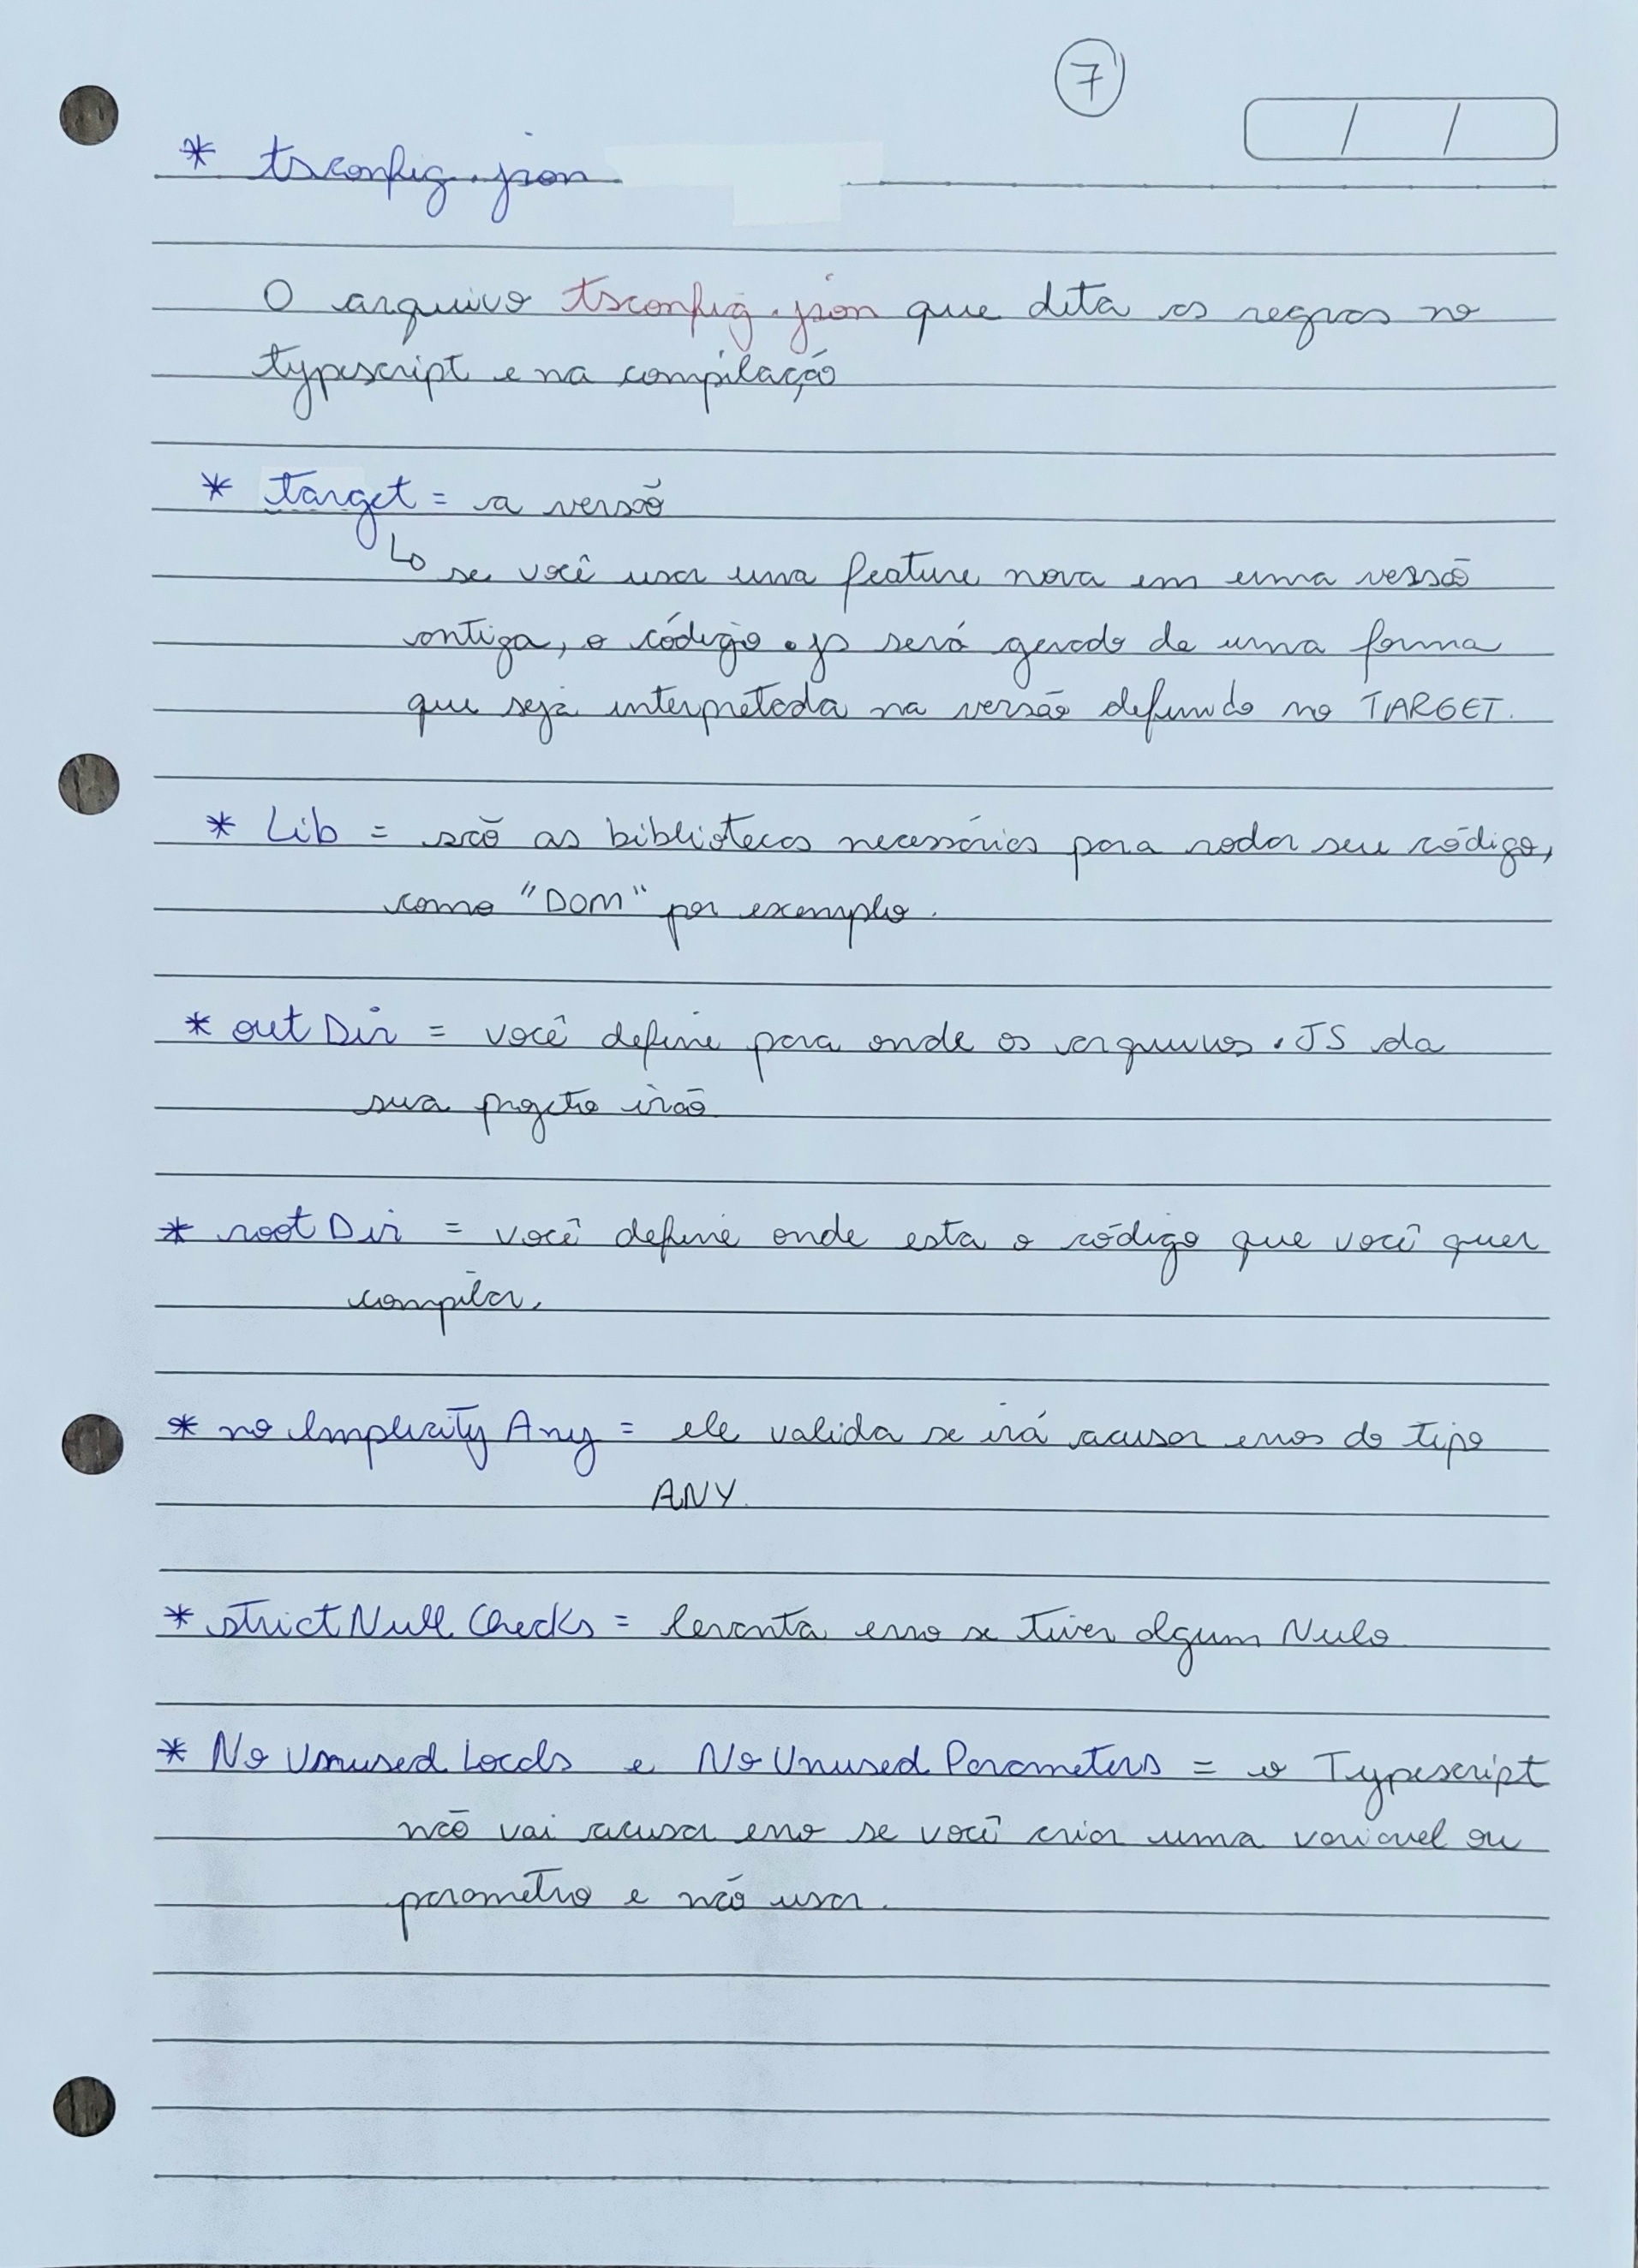 7
/ /
* tsconfig.json
O arquivo tsconfig.json que dita as regras no
typescript e na compilação
* target = a versão
↳ se você usar uma feature nova em uma versão
antiga, o código .js será gerado de uma forma
que seja interpretada na versão definido no TARGET.
* Lib = são as bibliotecas necessárias para rodar seu código,
como "DOM" por exemplo.
* outDir = você define para onde os arquivos .JS da
sua projeto irão
* rootDir = você define onde esta o código que você quer
compilar.
* no Implicity Any = ele valida se irá acusar erros do tipo
ANY.
* strictNull Checks = levanta erro se tiver algum Nulo
* No Unused Locals e No Unused Parameters = o Typescript
não vai acusar erro se você criar uma variavel ou
parametro e não usar.